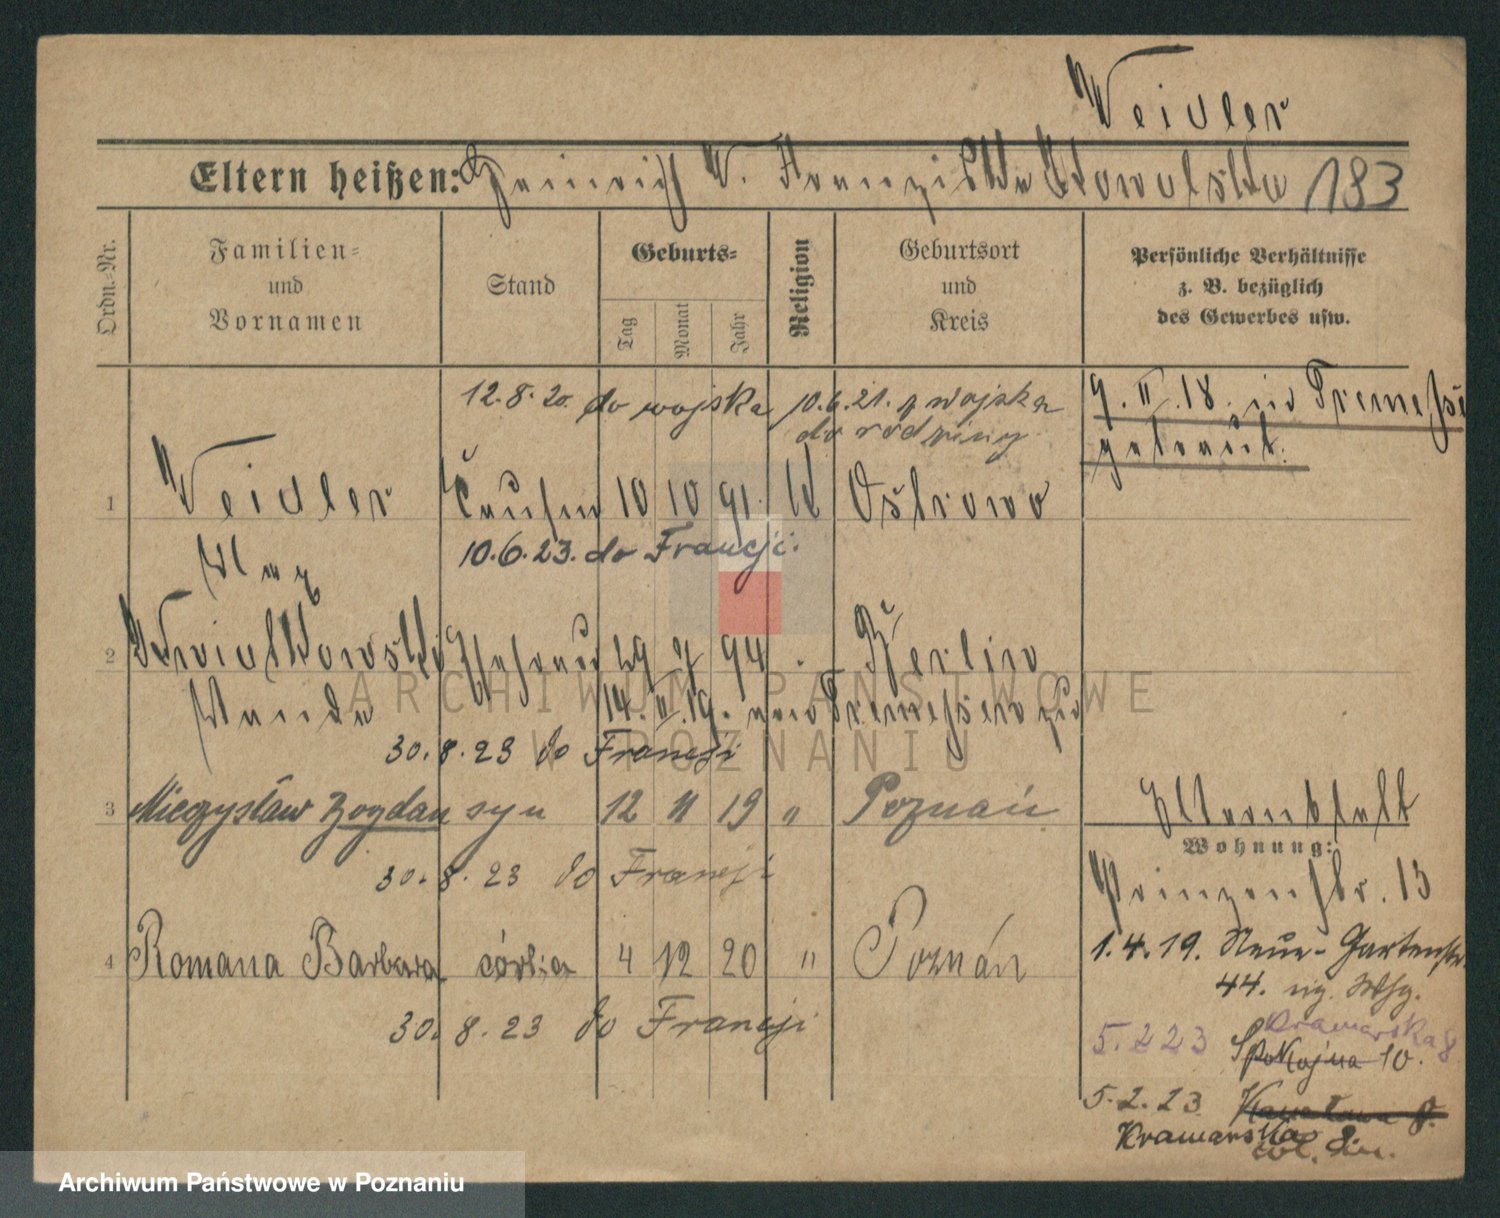 Weidler
Eltern heißen: Heinrich W. Franziska Kowalska 183
Ordn.-Nr.
Familien-
und
Vornamen
Stand
Geburts-
Tag
Monat
Jahr
Religion
Geburtsort
und
Kreis
Persönliche Verhältnisse
z. B. bezüglich
des Gewerbes usw.
12.8.20. do wojska
10.6.21. z wojska
do rodziny
9. II. 18. in
getraut.
1 Weidler 10 10 91. Ostrowo
Max
10.6.23. do Francji.
2 29 94 Berlin
Wanda
14. 19. zu
30.8.23 do Francji
3 Mieczysław Bogdan syn 12 11 19 " Poznań
30.8.23 do Francji
4 Romana Barbara córka 4 12 20 " Poznań
30.8.23 do Francji
Elternblatt
Wohnung:
Prinzenstr. 13
1.4.19. Neue-Gartenstr.
44. Whg.
5.2.23 Kramarska 8
Spokojna 10.
5.2.23
Kramarska
ARCHIWUM PAŃSTWOWE
W POZNANIU
Archiwum Państwowe w Poznaniu